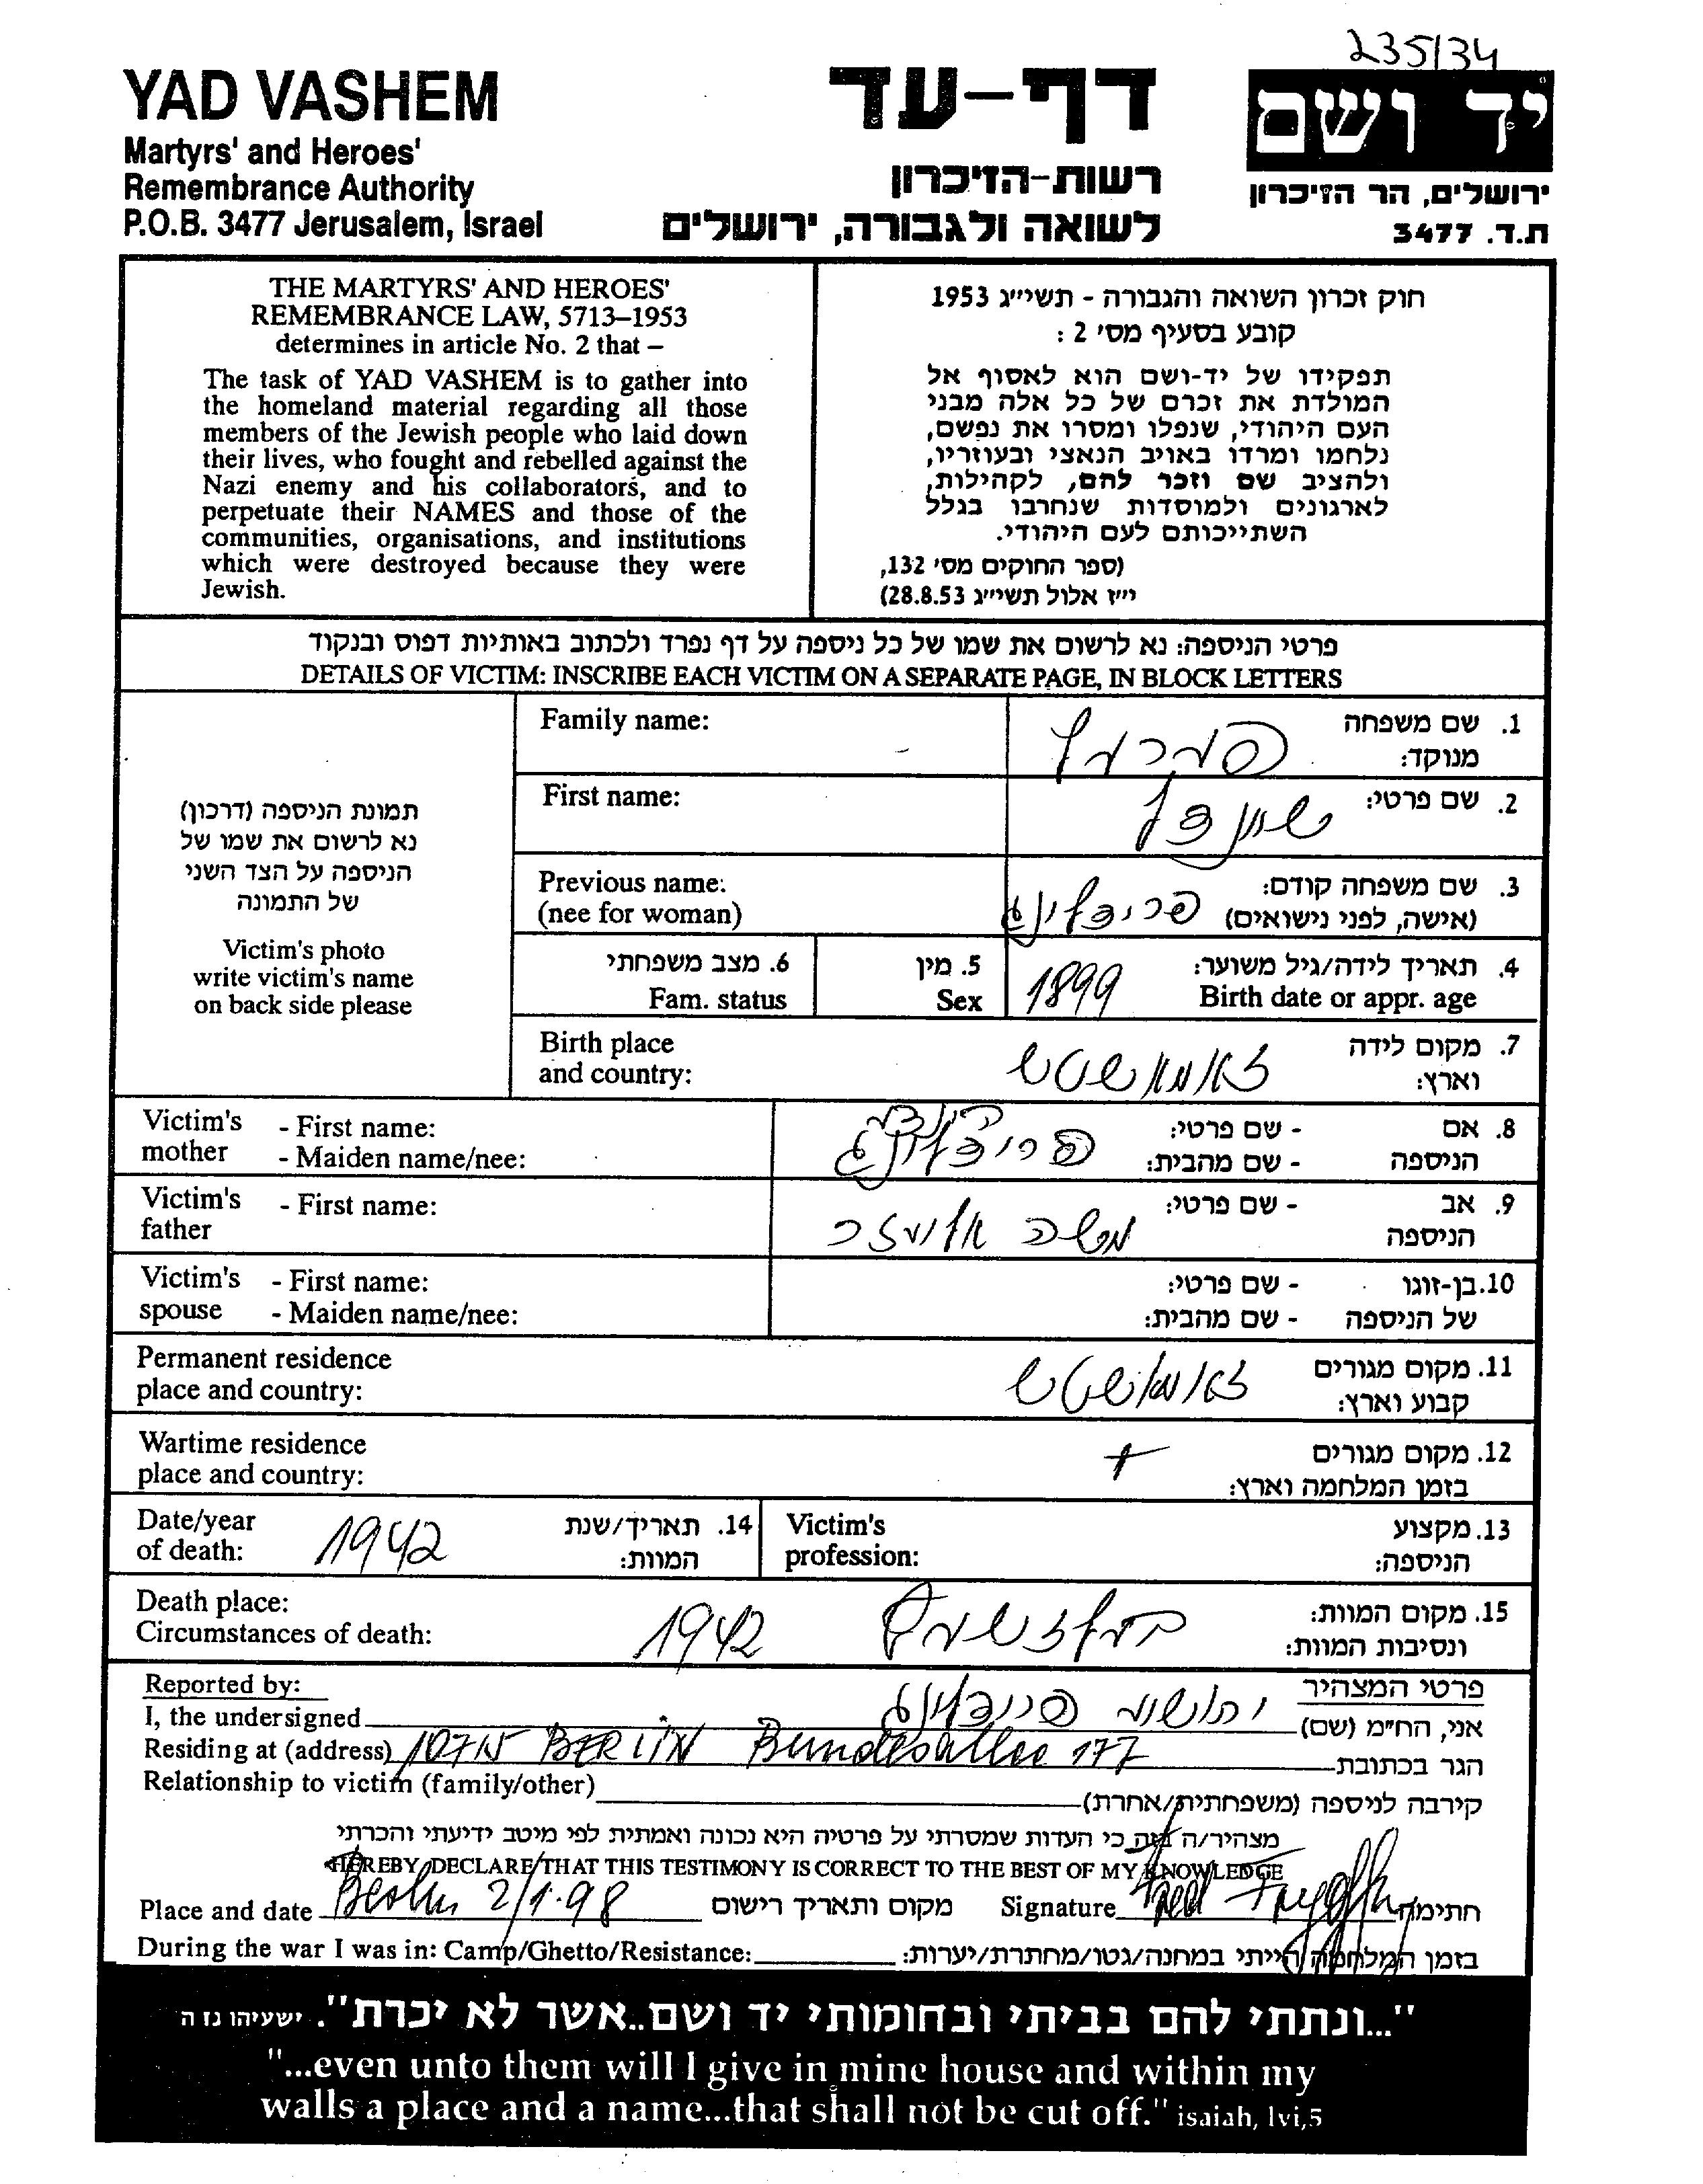 235/34
YAD VASHEM
Martyrs' and Heroes'
Remembrance Authority
P.O.B. 3477 Jerusalem, Israel
דף-עד
רשות-הזיכרון
לשואה ולגבורה, ירושלים
יד ושם
ירושלים, הר הזיכרון
ת.ד. 3477
THE MARTYRS' AND HEROES'
REMEMBRANCE LAW, 5713–1953
determines in article No. 2 that –
The task of YAD VASHEM is to gather into
the homeland material regarding all those
members of the Jewish people who laid down
their lives, who fought and rebelled against the
Nazi enemy and his collaborators, and to
perpetuate their NAMES and those of the
communities, organisations, and institutions
which were destroyed because they were
Jewish.
חוק זכרון השואה והגבורה - תשי״ג 1953
קובע בסעיף מס׳ 2 :
תפקידו של יד-ושם הוא לאסוף אל
המולדת את זכרם של כל אלה מבני
העם היהודי, שנפלו ומסרו את נפשם,
נלחמו ומרדו באויב הנאצי ובעוזריו,
ולהציב שם וזכר להם, לקהילות,
לארגונים ולמוסדות שנחרבו בגלל
השתייכותם לעם היהודי.
(ספר החוקים מס׳ 132,
י״ז אלול תשי״ג 28.8.53)
פרטי הניספה: נא לרשום את שמו של כל ניספה על דף נפרד ולכתוב באותיות דפוס ובנקוד
DETAILS OF VICTIM: INSCRIBE EACH VICTIM ON A SEPARATE PAGE, IN BLOCK LETTERS
תמונת הניספה (דרכון)
נא לרשום את שמו של
הניספה על הצד השני
של התמונה
Victim's photo
write victim's name
on back side please
Family name:
1. שם משפחה
מנוקד:
First name:
2. שם פרטי:
Previous name:
(nee for woman)
3. שם משפחה קודם:
(אישה, לפני נישואים)
6. מצב משפחתי
Fam. status
5. מין
Sex
1899
4. תאריך לידה/גיל משוער:
Birth date or appr. age
Birth place
and country:
זאמאשטש
7. מקום לידה
וארץ:
Victim's mother
- First name:
- Maiden name/nee:
- שם פרטי:
- שם מהבית:
8. אם
הניספה
Victim's father
- First name:
משה אליעזר
- שם פרטי:
9. אב
הניספה
Victim's spouse
- First name:
- Maiden name/nee:
- שם פרטי:
- שם מהבית:
10. בן-זוגו
של הניספה
Permanent residence
place and country:
זאמאשטש
11. מקום מגורים
קבוע וארץ:
Wartime residence
place and country:
+
12. מקום מגורים
בזמן המלחמה וארץ:
Date/year
of death:
1942
14. תאריך/שנת
המוות:
Victim's
profession:
13. מקצוע
הניספה:
Death place:
Circumstances of death:
1942
15. מקום המוות:
ונסיבות המוות:
Reported by:
פרטי המצהיר
I, the undersigned
אני, הח״מ (שם)
Residing at (address) 10715 BERLIN Bundesallee 177
הגר בכתובת
Relationship to victim (family/other)
קירבה לניספה (משפחתית/אחרת)
מצהיר/ה בזה כי העדות שמסרתי על פרטיה היא נכונה ואמתית לפי מיטב ידיעתי והכרתי
HEREBY DECLARE THAT THIS TESTIMONY IS CORRECT TO THE BEST OF MY KNOWLEDGE
Place and date Berlin 2/1.98 מקום ותאריך רישום Signature חתימה
During the war I was in: Camp/Ghetto/Resistance: בזמן המלחמה הייתי במחנה/גטו/מחתרת/יערות:
"...ונתתי להם בביתי ובחומותי יד ושם..אשר לא יכרת". ישעיהו נז ה
"...even unto them will I give in mine house and within my
walls a place and a name...that shall not be cut off." isaiah, lvi,5